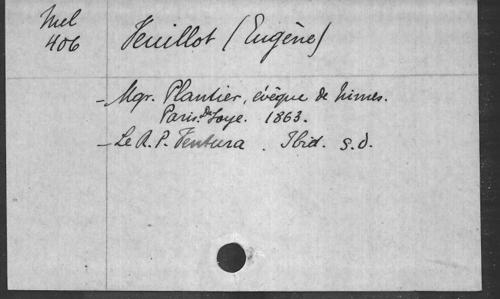 Mel
406
Veuillot (Eugène)
- Mgr. Plantier, évêque de Nimes.
Paris. de Soye. 1863.
- Le R. P. Ventura. Ibid. s.d.